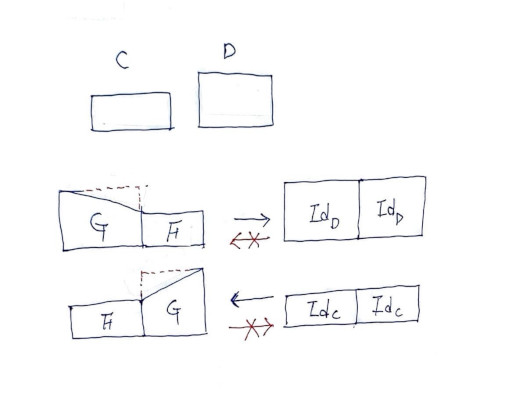 C D
G F Id_D Id_D
F G Id_C Id_C